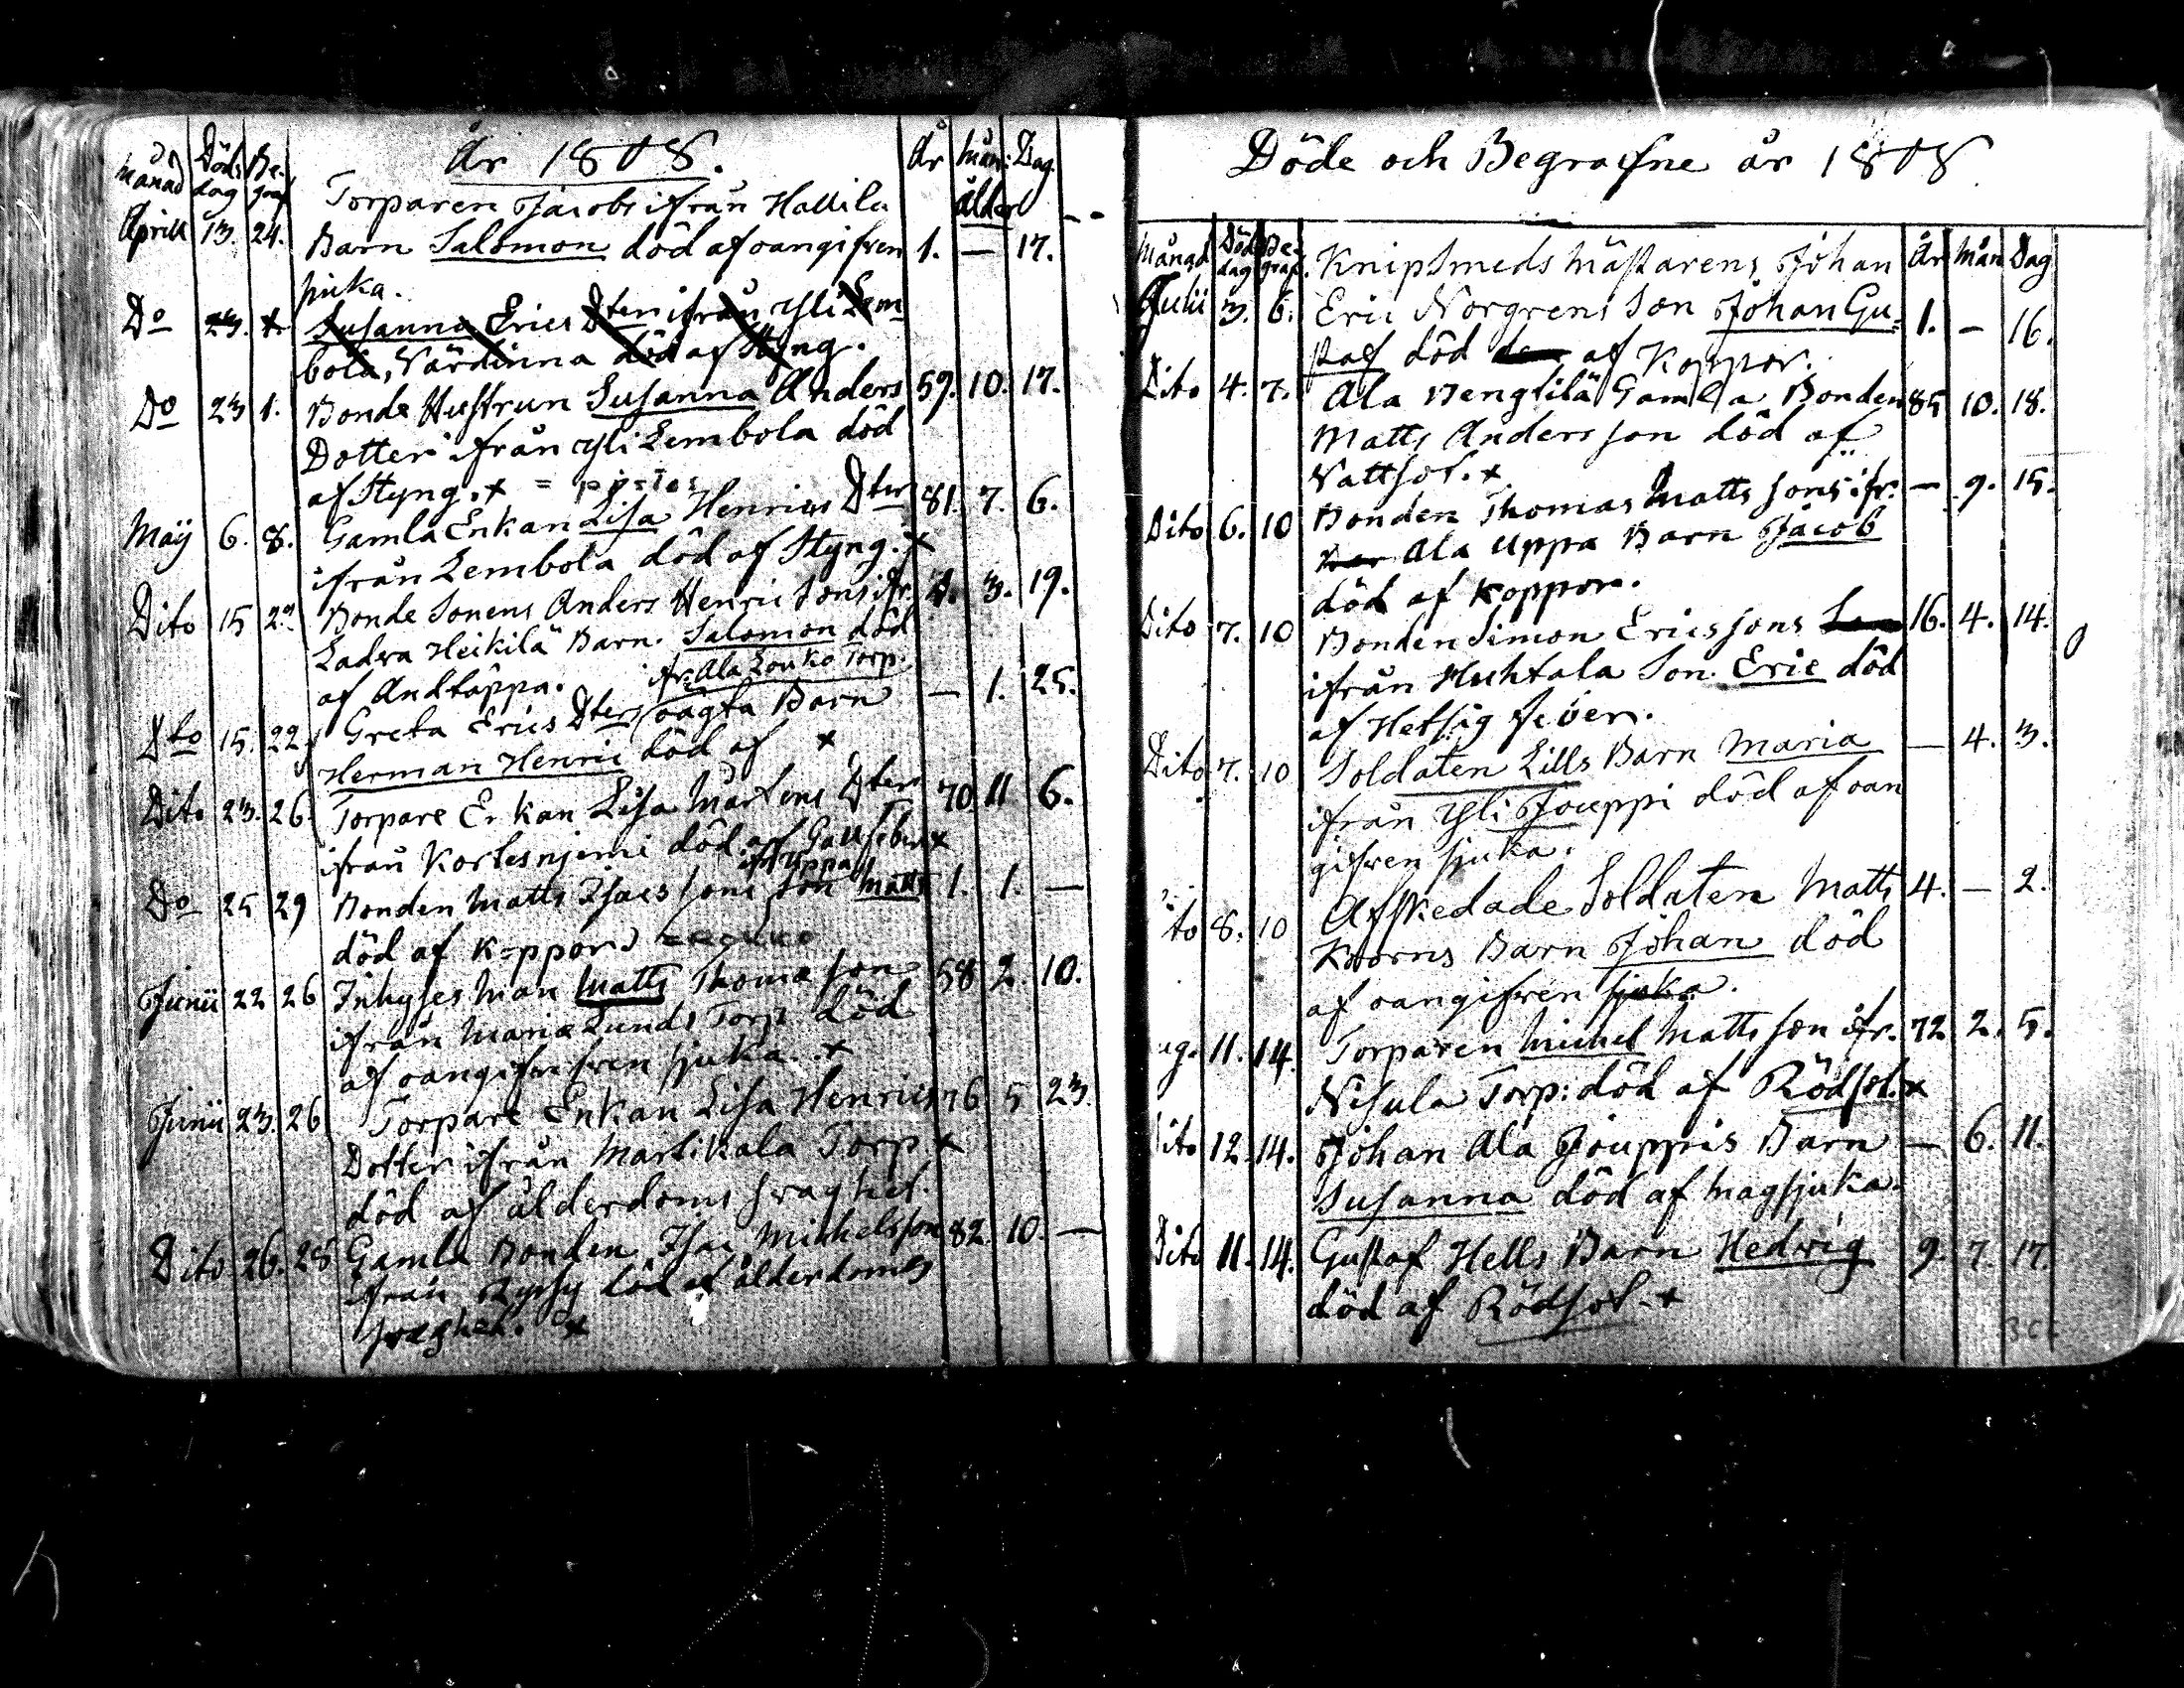 År 1808.
Månad Döds dag Be-graf År Mån: Dag
ålder
Torparen Jacobs ifrån Hallila
Aprill 13. 24. Barn Salomon död af oangifven 1. — 17.
sjuka.
Do 23. Susanna Erics Dter ifrån Yli Lem
bola, Värdinna död af Styng.
Do 23 1. Bonde Hustrun Susanna Anders 59. 10. 17.
Dotter ifrån Yli Lembola död
af Styng. x
Maij 6. 8. Gamla Enkan Lisa Henrics Dter 81. 7. 6.
ifrån Lembola död af Styng. x
Dito 15 Bonde Sonens Anders Henricsons ifr. 3. 19.
Ladva Heikilä Barn. Salomon död
af Andtäppa. ifr: Ala Louko Torp.
Dto 15. 22 Greta Erics Dters oägta Barn — 1. 25.
Herman Henric död af x
Dito 23. 26. Torpare Enkan Lisa Mårtens Dter 70 11 6.
ifrån Kortesnjemi död af Gallfeber x
ifr Uppa
Do 25 29 Bonden Matts Isacs sons Son Matts 1. 1. —
död af Koppor
Junii 22 26 Inhyses Man Matts Thomasson 58 2. 10.
ifrån Maria Lunds Torp död
af oangifven sjuka. x
Junii 23. 26 Torpare Enkan Lisa Henrics 76 5 23.
Dotter ifrån Martikala Torp. x
död af ålderdoms svaghet.
Dito 26. 28 Gamla Bonden Isac Michelsson 82. 10. —
ifrån Ryssy död af ålderdoms
svaghet. x
Döde och Begrafne år 1808
Månad Död dag Be-graf. År Mån Dag
Knipsmeds Mästarens Johan
Julii 3. 6. Eric Norgrens Son Johan Gu= 1. — 16.
staf död af Koppor.
Dito 4. 7. Ala Benglilä Gamla Bonden 85 10. 18.
Matts Andersson död af
Vattsot. x
Dito 6. 10 Bonden Thomas Mattssons ifr. — 9. 15.
Ala Uppa Barn Jacob
död af Koppor.
Dito 7. 10 Bonden Simon Ericssons 16. 4. 14.
ifrån Huhtala Son Eric död
af Hetsig feber.
Dito 7. 10 Soldaten Lills Barn Maria — 4. 3.
ifrån Yli Jouppi död af oan
gifven sjuka.
ito 8. 10 Afskedade Soldaten Matts 4. — 2.
Koorns Barn Johan död
af oangifven sjuka.
ug. 11. 14. Torparen Michel Mattsson ifr. 72 2. 5.
Nisula Torp: död af Rödsot. x
ito 12. 14. Johan Ala Jouppis Barn — 6. 11.
Susanna död af Magsjuka.
Dito 11. 14. Gustaf Hells Barn Hedwig 9. 7. 17.
död af Rödsot. x